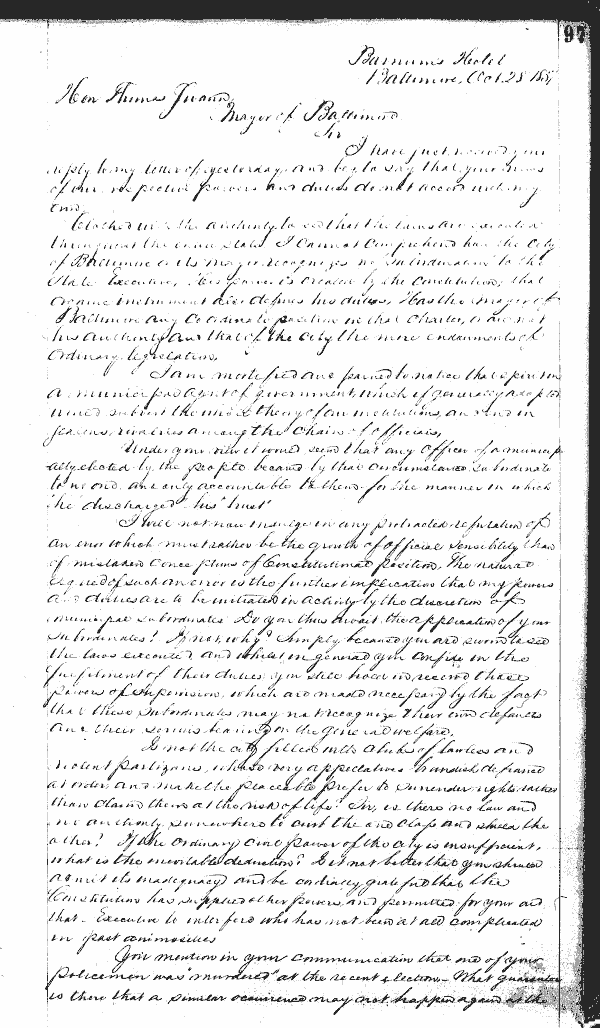 97
Barnum's Hotel
Baltimore, Oct. 28 1857
Hon Thomas Swann,
Mayor of Baltimore
Sir
I have just received your
reply to my letter of yesterday, and beg to say that your views
of our respective powers and duties do not accord with my
own.
Clothed with the authority to see that the laws are executed
throughout the entire State I cannot comprehend how the City
of Baltimore or its mayor recognizes no subordination to the
State Executive. His power is created by the Constitution; that
organic instrument also defines his duties. Has the mayor of
Baltimore any co ordinate position in that charter, or are not
his authority and that of the city the mere endowments of
ordinary legislation.
I am mortified and pained to notice that spirit in
a municipal agent of government which if generally adopted
would subvert the whole theory of our institutions, and end in
jealous rivalries among the chain of officials.
Under your view it would seem that any officer of a municip
ality elected by the people became by that circumstance subordinate
to no one and only accountable to them for the manner in which
"he discharged his trust"
I will not now indulge in any protracted refutation of
an error which must rather be the growth of official sensibility than
of mistaken conceptions of Constitutional position. The natural
sequel of such an error is the further implication that my powers
and duties are to be initiated in activity by the discretion of
municipal subordinates. Do you thus await the application of your
subordinates? If not, why? Simply because you are sworn to see
the laws executed, and whilst in general you confide in the
fulfilment of their duties you still hold in reserve those
powers of supervision, which are made necessary by the fact
that these subordinates may not recognize their own defaults
and their serious bearing on the general welfare.
Is not the city filled with clubs of lawless and
violent partizans, whose very appellatives brandish defiance
at order and make the peaceable prefer to surrender rights rather
than claim them at the risk of life? Sir, is there no law and
no authority somewhere to curb the one class and shield the
other? If the ordinary civil power of the city is insufficient,
what is the inevitable deduction? Is it not better that you should
admit its inadequacy and be cordially grateful that the
Constitution has supplied other powers and permitted for your aid
that Executive to interfere who has not been at all complicated
in past animosities
You mention in your communication that one of your
policemen was "murdered" at the recent election. What guarantee
is there that a similar occurrence may not happen again at the